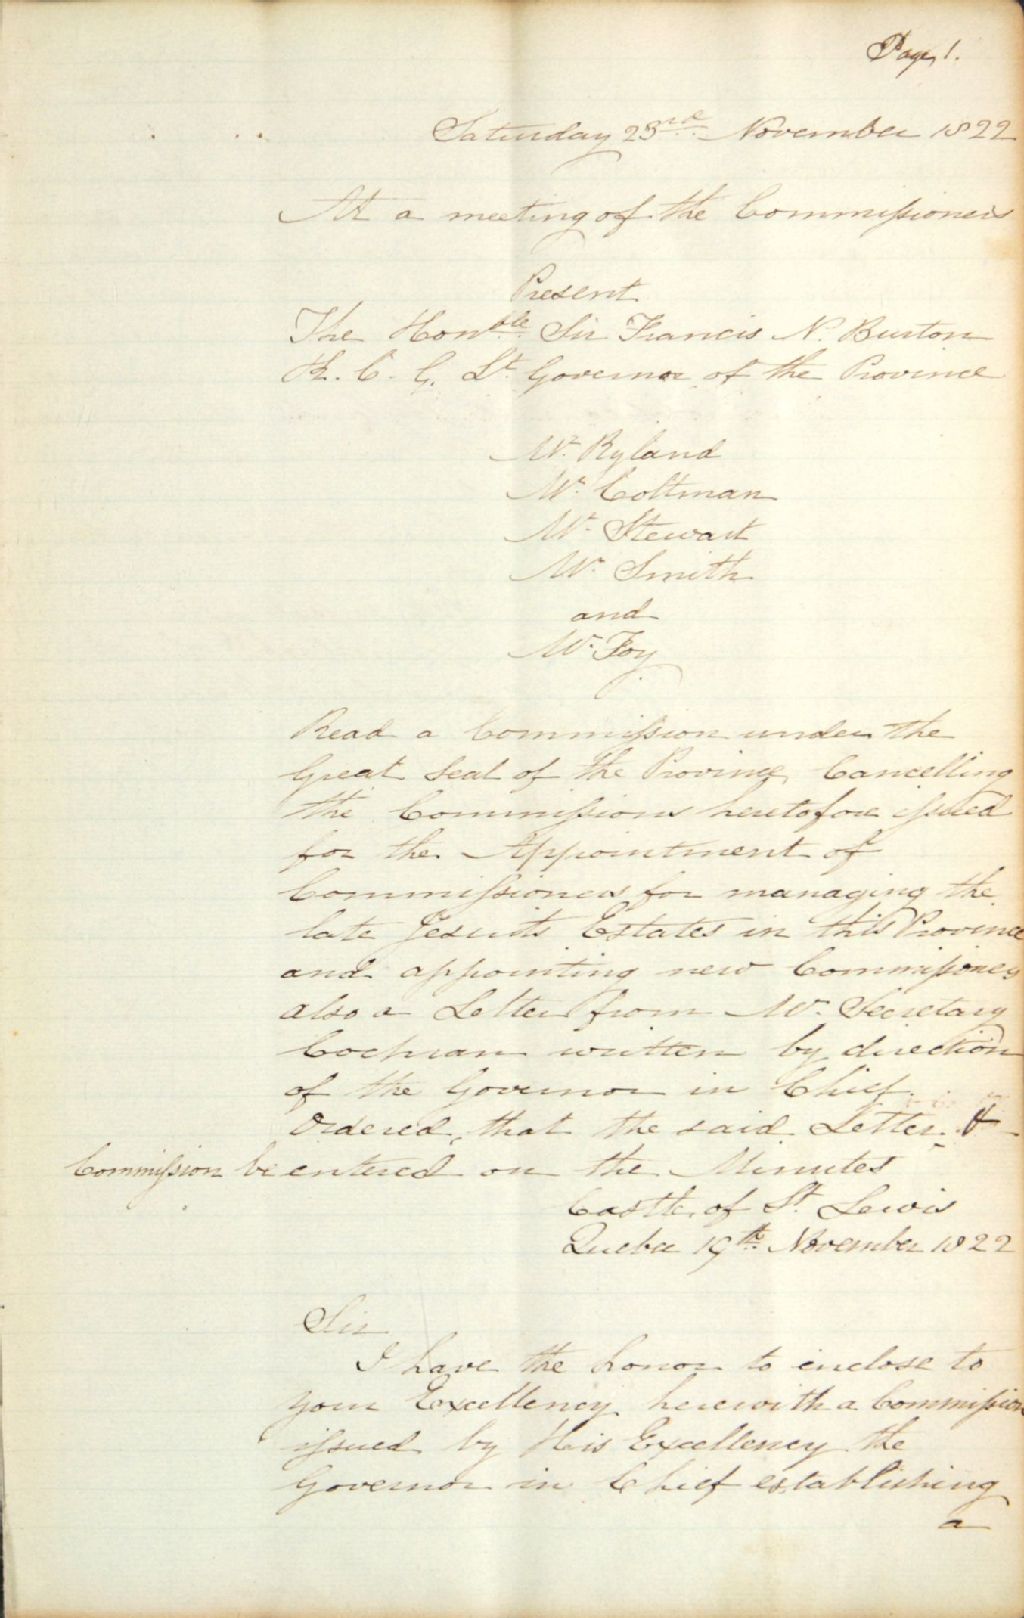 Page 1.
Saturday 23rd November 1822
At a meeting of the Commissioners
Present
The Honble Sir Francis N. Burton
K. C. G. Lt Governor of the Province
Mr Ryland
Mr Coltman
Mr Stewart
Mr Smith
and
Mr Foy
Read a Commission under the
Great Seal of the Province Cancelling
the Commissions heretofore issued
for the Appointment of
Commissioners for managing the
late Jesuits Estates in this Province
and appointing new Commissioners
also a Letter from Mr Secretary
Cochran written by direction
of the Governor in Chief.
Ordered, that the said Letter &
Commission be entered on the Minutes
Castle of St Lewis
Quebec 19th November 1822
Sir
I have the honor to inclose to
your Excellency herewith a Commission
issued by His Excellency the
Governor in Chief establishing
a